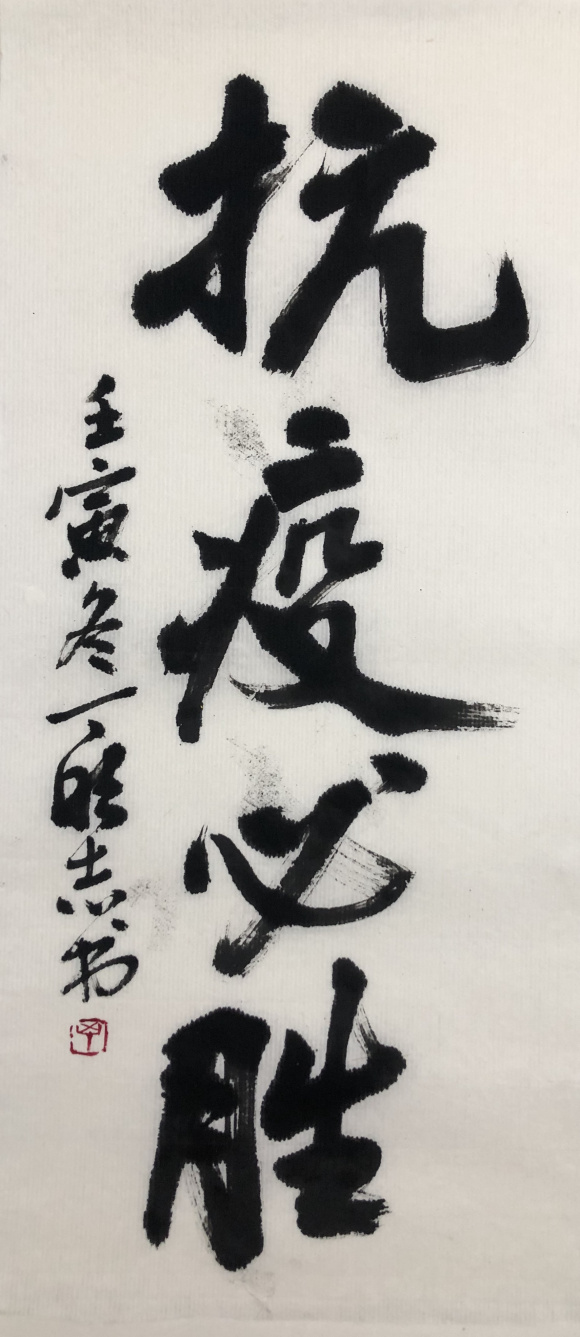 抗疫必胜
壬寅冬丁晓志书